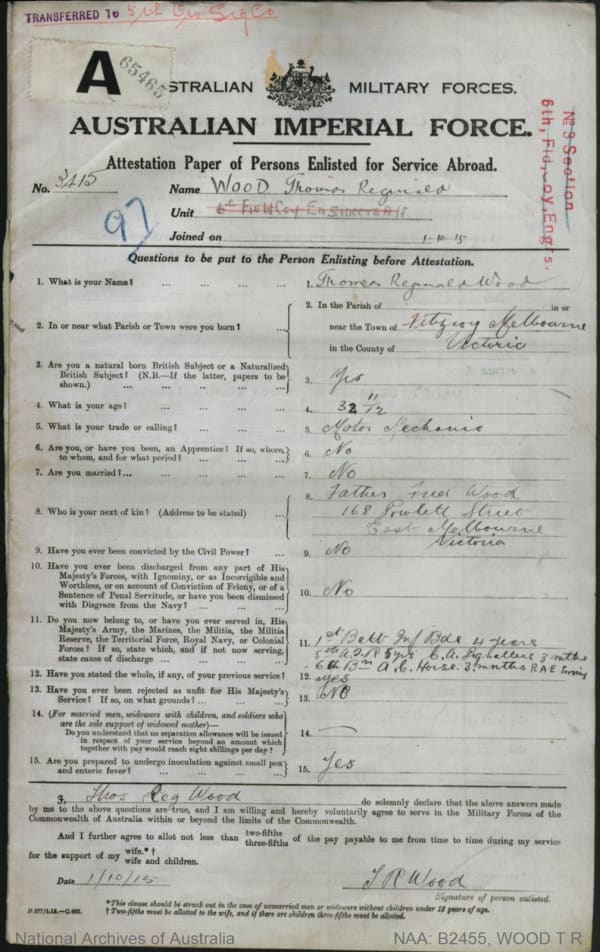 TRANSFERRED TO 5th Div. Sig Co
65465
A
AUSTRALIAN MILITARY FORCES.
AUSTRALIAN IMPERIAL FORCE.
Attestation Paper of Persons Enlisted for Service Abroad.
No. 3415 Name WOOD Thomas Reginald
Unit 6th Field Coy Engineers AIF
Joined on 1-10-15
97
No 3 Section
6th, Fld, Coy, Engrs.
Questions to be put to the Person Enlisting before Attestation.
1. What is your Name? ... ... ... ... 1. Thomas Reginald Wood
2. In or near what Parish or Town were you born? ... 2. In the Parish of in or
near the Town of Fitzroy Melbourne
in the County of Victoria
3. Are you a natural born British Subject or a Naturalized
British Subject? (N.B.—If the latter, papers to be
shown.) ... ... ... ... ... 3. Yes
4. What is your age? ... ... ... ... 4. 32 11/12
5. What is your trade or calling? ... ... ... 5. Motor Mechanic
6. Are you, or have you been, an Apprentice? If so, where,
to whom, and for what period? ... ... ... 6. No
7. Are you married?... ... ... ... ... 7. No
8. Who is your next of kin? (Address to be stated) ... 8. Father Fred Wood
168 Powlett Street
East Melbourne
Victoria
9. Have you ever been convicted by the Civil Power? ... 9. No
10. Have you ever been discharged from any part of His
Majesty's Forces, with Ignominy, or as Incorrigible and
Worthless, or on account of Conviction of Felony, or of a
Sentence of Penal Servitude, or have you been dismissed
with Disgrace from the Navy? ... ... ... 10. No
11. Do you now belong to, or have you ever served in, His
Majesty's Army, the Marines, the Militia, the Militia
Reserve, the Territorial Force, Royal Navy, or Colonial
Forces? If so, state which, and if not now serving,
state cause of discharge ... ... ... ... 11. 1st Batt Inf Bde 4 years
5th A.I.R 5yrs C.A. Signallers 3 months
6th Bn A.L. Horse 3 months R A E
12. Have you stated the whole, if any, of your previous service? 12. Yes
13. Have you ever been rejected as unfit for His Majesty's
Service? If so, on what grounds? ... ... ... 13. NO
14. (For married men, widowers with children, and soldiers who
are the sole support of widowed mother)—
Do you understand that no separation allowance will be issued
in respect of your service beyond an amount which
together with pay would reach eight shillings per day? 14. —
15. Are you prepared to undergo inoculation against small pox
and enteric fever? ... ... ... ... 15. Yes
I, Thos Reg Wood do solemnly declare that the above answers made
by me to the above questions are true, and I am willing and hereby voluntarily agree to serve in the Military Forces of the
Commonwealth of Australia within or beyond the limits of the Commonwealth.
And I further agree to allot not less than two-fifths three-fifths of the pay payable to me from time to time during my service
for the support of my wife.*† wife and children.
Date 1/10/15 T R Wood
Signature of person enlisted.
*This clause should be struck out in the case of unmarried men or widowers without children under 18 years of age.
† Two-fifths must be allotted to the wife, and if there are children three-fifths must be allotted.
National Archives of Australia NAA: B2455, WOOD T R